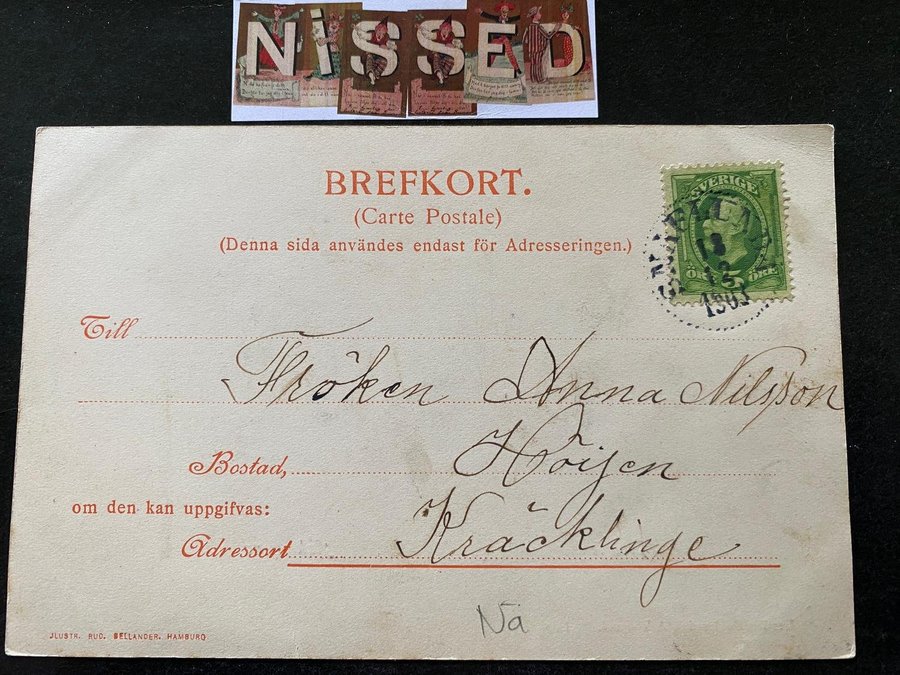 NISSED
BREFKORT.
(Carte Postale)
(Denna sida användes endast för Adresseringen.)
SVERIGE
ÖRE 5 ÖRE
18
12
1903
Till
Fröken Anna Nilsson
Bostad, Höijen
om den kan uppgifvas:
Adressort Kräcklinge
Nä
JLLUSTR. RUD. BELLANDER. HAMBURG